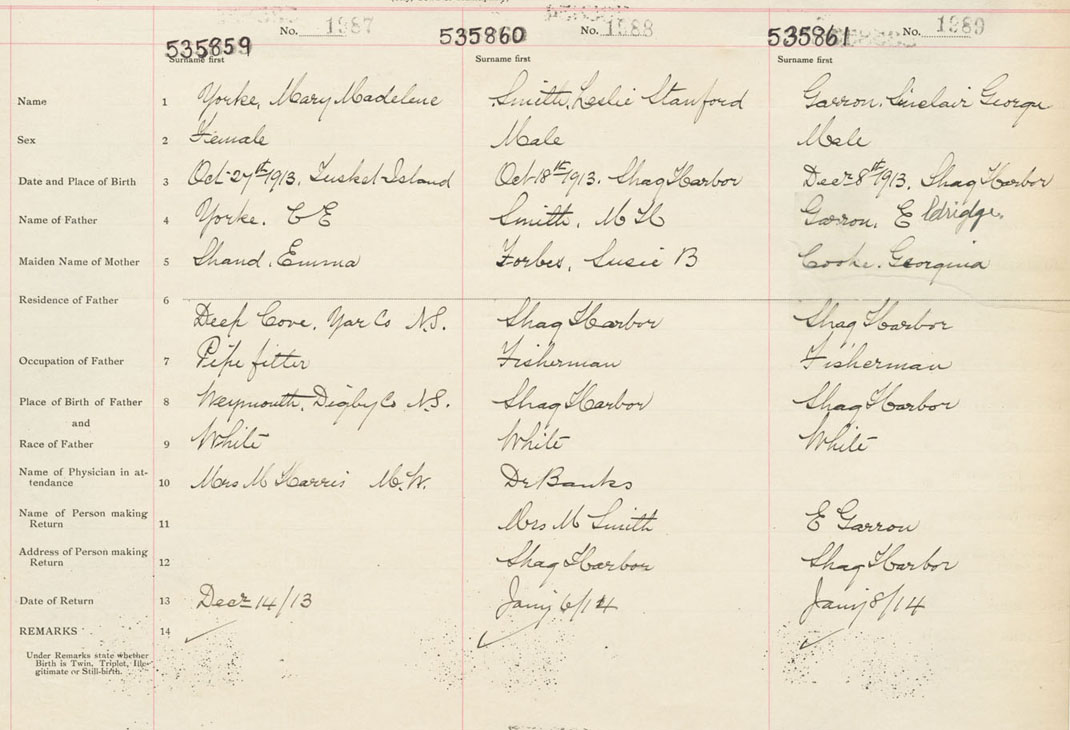 No. 1987 No. 1988 No. 1989
535859 535860 535861
Surname first Surname first Surname first
Name 1 Yorke, Mary Madelene Smith, Leslie Stanford Garron, Sinclair George
Sex 2 Female Male Male
Date and Place of Birth 3 Oct 27th 1913. Tusket Island Oct 18th 1913. Shag Harbor Decr 8th 1913. Shag Harbor
Name of Father 4 Yorke. C E Smith, M H Garron, Eldridge.
Maiden Name of Mother 5 Shand, Emma Forbes, Susie B Cooke, Georgina
Residence of Father 6
Deep Cove, Yar Co N.S. Shag Harbor Shag Harbor
Occupation of Father 7 Pipe fitter Fisherman Fisherman
Place of Birth of Father 8 Weymouth, Digby Co N.S. Shag Harbor Shag Harbor
and
Race of Father 9 White White White
Name of Physician in at-
tendance 10 Mrs M Harris M.W. Dr Banks
Name of Person making
Return 11 Mrs M Smith E Garron
Address of Person making
Return 12 Shag Harbor Shag Harbor
Date of Return 13 Decr 14/13 Jany 6/14 Jany 8/14
REMARKS 14
Under Remarks state whether
Birth is Twin, Triplet, Ille-
gitimate or Still-birth.